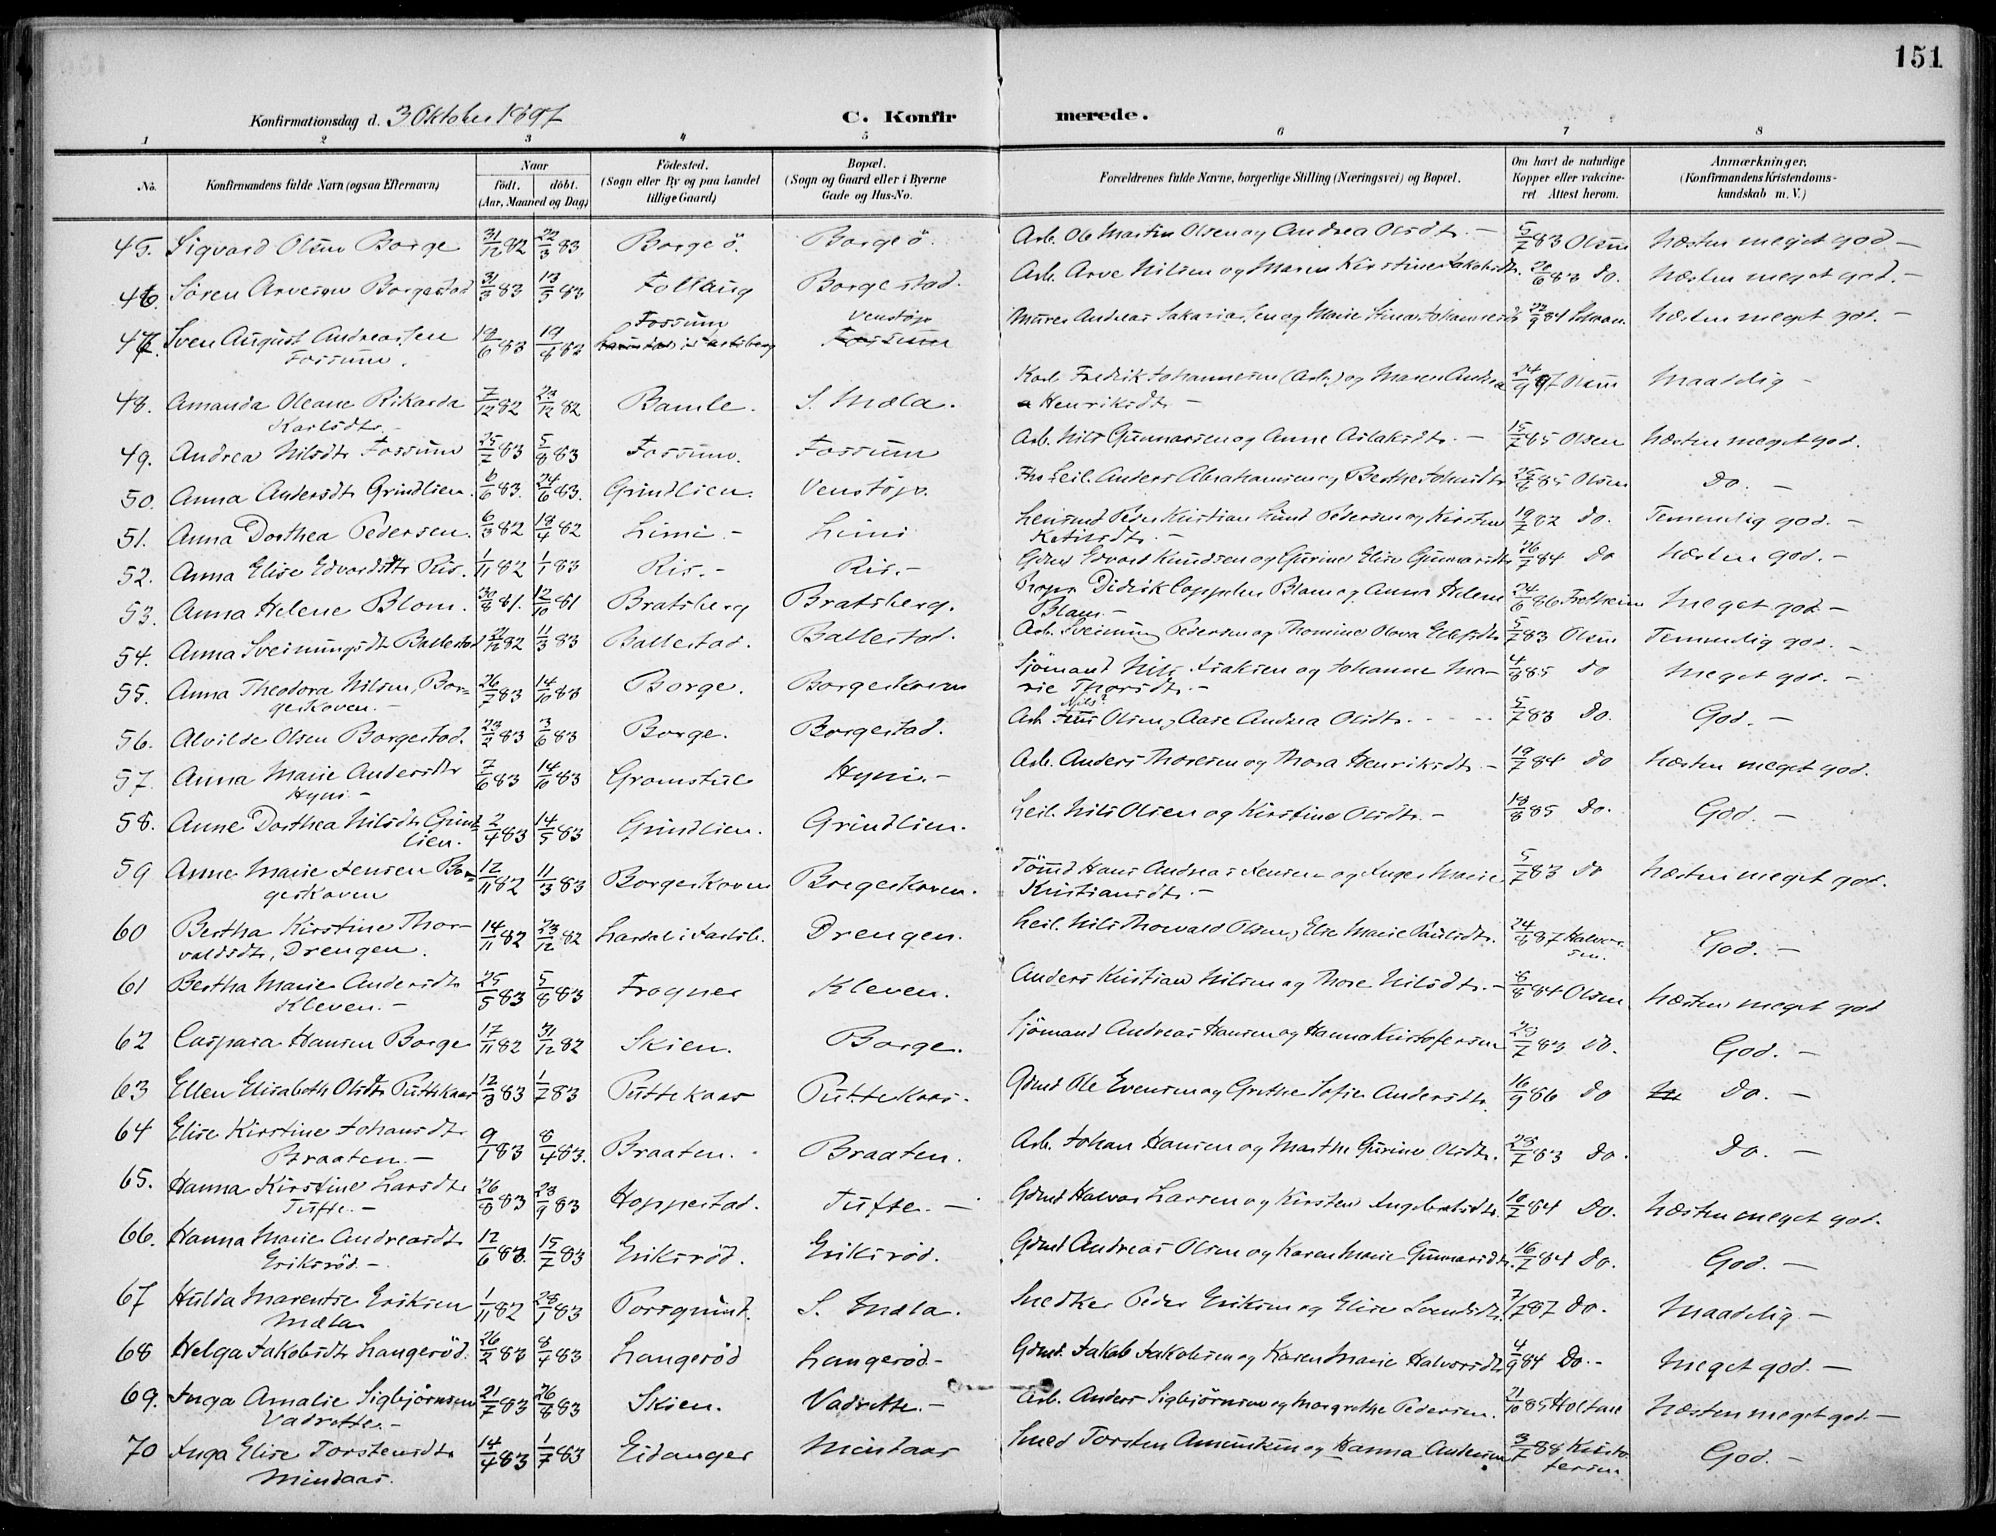 151
Konfirmationsdag d. 3 Oktober 1897
C. Konfir merede.
1 2 3 4 5 6 7 8
No. Konfirmandens fulde Navn (ogsaa Efternavn) Naar født. døbt. (Aar, Maaned og Dag) Fødested. (Sogn eller By og paa Landet tillige Gaard) Bopæl. (Sogn og Gaard eller i Byerne Gade og Hus-No. Forældrenes fulde Navne, borgerlige Stilling (Næringsvei) og Bopæl. Om havt de naturlige Kopper eller vakcineret. Attest herom. Anmærkninger. (Konfirmandens Kristendomskundskab m. V.)
45. Sigvard Olsen Borge 31/12 82 22/3 83 Borge ö. Borge ö. Arb. Ole Martin Olsen og Andrea Olsdtr. – 5/7 83 Olsen Næsten meget god –
46. Søren Arvesen Borgestad 31/3 83 13/5 83 Follaug Borgestad. Arb. Arve Nilsen og Maren Kirstine Jakobsdtr. 20/6 83 Do. Næsten meget god. –
47. Sven August Andreassen 12/6 83 19/8 83 Fossum Venstøp Murer Andreas Sakariassen og Marie 22/9 84 Næsten meget god. –
Fossum. Fossum
48. Amanda Oleane Rikarda 7/12 82 23/12 82 Bamle. S. Mæla. Karl Fredrik Johannesen (Arb.) og Maren Andrea 24/9 97 Olsen Maadelig –
Karlsdtr. – Henriksdtr –
49. Andrea Nilsdtr Fossum 25/7 83 5/8 83 Fossum. Fossum Arb. Nils Gunnarsen og Anne Aslaksdtr. – 15/7 85 Olsen Næsten meget god.
50. Anna Andersdtr Grindlien. 6/6 83. 24/6 83. Grindlien. Venstøp. Leil. Anders Abrahamsen og Berthe Johnsdtr 25/8 85 Olsen Do. –
51. Anna Dorthea Pedersen. 6/3 82 18/4 82 Limi – Limi Peder Kristian Lund Pedersen og Kirsten 19/7 82 Do. Temmelig god. –
Ketilsdtr. –
52. Anna Elise Edvardsdtr Ris. 1/11 82 1/1 83 Ris. – Ris. – Gdmd Edvard Knudsen og Gurine Elise Gunnarsdtr 26/7 84 Do Næsten god. –
53. Anna Helene Blom. 30/8 81. 12/10 81 Bratsberg Bratsberg. Propr. Didrik Cappelen Blom og Anna Helene 24/6 86 Fretheim Meget god. –
Blom. –
54. Anna Sveinungsdtr Ballestad 21/12 82 11/3 83 Ballestad. Ballestad. Arb. Sveinung Pedersen og Thomine Olava Ellefsdtr 5/7 83 Olsen Temmelig god. –
55. Anna Theodora Nilsen, Bor- 26/7 83 14/10 83 Borge. Borgeskoven Sjømand Nils Isaksen og Johanne Ma- 4/8 85 Do Meget god. –
geskoven. – rie Thorsdtr. –
56. Alvilde Olsen Borgestad. 23/2 83 3/6 83 Borge. Borgestad. Arb. Nils? Olsen, Aase Andrea Olsdtr. 5/7 83 Do. God. –
57. Anna Marie Andersdtr 7/6 83 14/10 83 Gromstul Hyni. – Arb. Anders Thoresen og Thora Henriksdtr. – 19/7 84 Do Næsten meget god.
Hyni. –
58. Anne Dorthea Nilsdtr Grind- 2/4 83 14/5 83 Grindlien. Grindlien. Leil. Nils Olsen og Kirstine Olsdtr. – 18/8 85 Do. God. –
lien.
59 Anne Marie Jensen Bor- 12/11 82 11/3 83 Borgeskoven Borgeskoven. Tømd Hans Andreas Jensen og Inger Marie 5/7 83 Do Næsten meget god.
geskoven Kristiansdtr. –
60 Bertha Kirstine Thor- 14/11 82 23/12 82 Lardal i Jarlsb. Drengen. Leil. Nils Thorvald Olsen, Elise Marie Paulsdtr. 24/8 87 Halvor- God. –
valdsdtr, Drengen. sen.
61 Bertha Marie Andersdtr 25/5 83 5/8 83 Frogner Kleven. Anders Kristian Nilsen og Thore Nilsdtr. – 8/8 84 Olsen Næsten meget god
Kleven. –
62 Caspara Hansen Borge 17/11 82 31/12 82 Skien. Borge. Sjømand Andreas Hansen og Hanna Kristofersen 25/7 83 Do. God. –
63 Ellen Elisabeth Olsdtr Puttekaas 12/3 83 1/7 83 Puttekaas Puttekaas. Gdmd Ole Evensen og Grethe Sofie Andersdtr. 16/9 86 Do Do. –
64 Elise Kirstine Johansdtr 9/1 83 8/4 83. Braaten. Braaten. Arb. Johan Hansen og Marthe Gurine Olsdtr. 25/7 83 Do. Do. –
Braaten. –
65. Hanna Kirstine Larsdtr 26/8 83 23/9 83 Hoppestad. Tufte. – Gdmd Halvor Larsen og Kirsten Ingebretsdtr. 10/7 84 Do. Næsten meget god.
Tufte. –
66. Hanna Marie Andreasdtr 12/6 83. 15/7 83 Eriksrød. Eriksrød. Gdmd Andreas Olsen og Karen Marie Gunnarsdtr. 16/7 84 Do. God. –
Eriksrød. –
67 Hulda Marentse Eriksen 1/11 82 28/1 83 Porsgrund. S. Mæla. Snedker Peder Eriksen og Elise 7/7 87 Do. Maadelig –
Mæla
68 Helga Jakobsdtr Langerød. 26/2 83 8/4 83 Langerød Langerød – Gdmd. Jakob Jakobsen og Karen Marie Halvorsdtr 4/9 84 Do. – Meget god. –
69. Inga Amalie Sigbjørnsen 21/7 83 26/8 83 Skien. Vadrette. – Arb. Anders Sigbjørnsen og Margrethe Pedersen. 21/10 85 Holtan Næsten meget god. –
Vadrette. –
70 Inga Elise Torstensdtr 14/4 83 1/7 83 Eidanger Mindaas Smed Torsten Amundsen og Hanna Andersen 3/7 88 Kristo- God. –
Mindaas. fersen